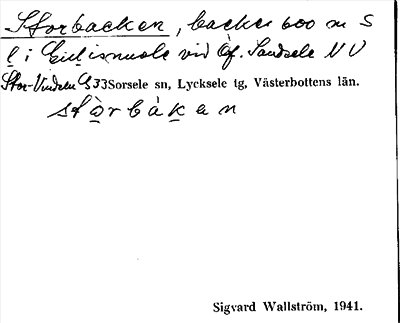 Storbacken, backe 600 m S
l i Gillesnuole vid Öf. Sandsele NV
Stor-Vindeln G33 Sorsele sn, Lycksele tg, Västerbottens län.
stòrbàkan
Sigvard Wallström, 1941.